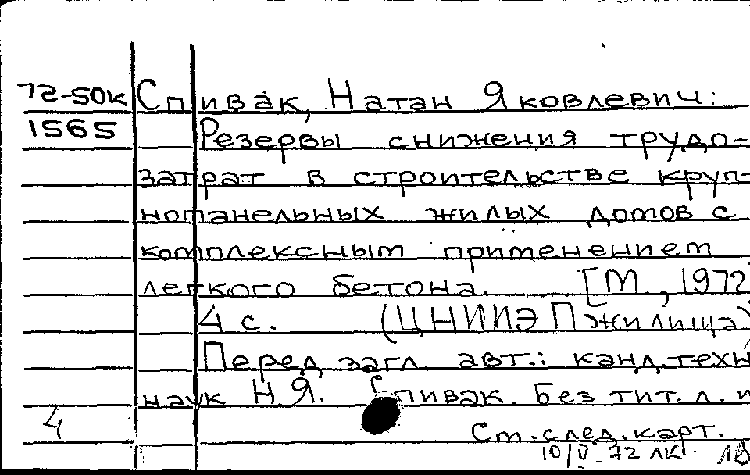 72-50к Спивак, Натан Яковлевич:
1565 Резервы снижения трудо-
затрат в строительстве круп-
нопанельных жилых домов с
комплексным применением
легкого бетона. [М., 1972
4 с. (ЦНИИЭПжилища)
Перед загл. авт.: канд. техн
наук Н.Я. Спивак. Без тит. л. и
4 См. след. карт.
10/V-72 ЛК